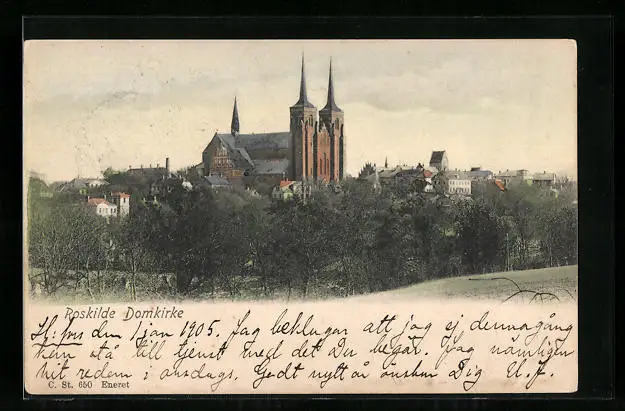 Roskilde Domkirke
H.fors den 1 jan 1905. Jag beklagar att jag ej denna gång
kan stå till tjenst med det Du begär. Jag nämligen
hit redan i onsdags. Godt nytt år önskar Dig E. F.
C. St. 650 Eneret